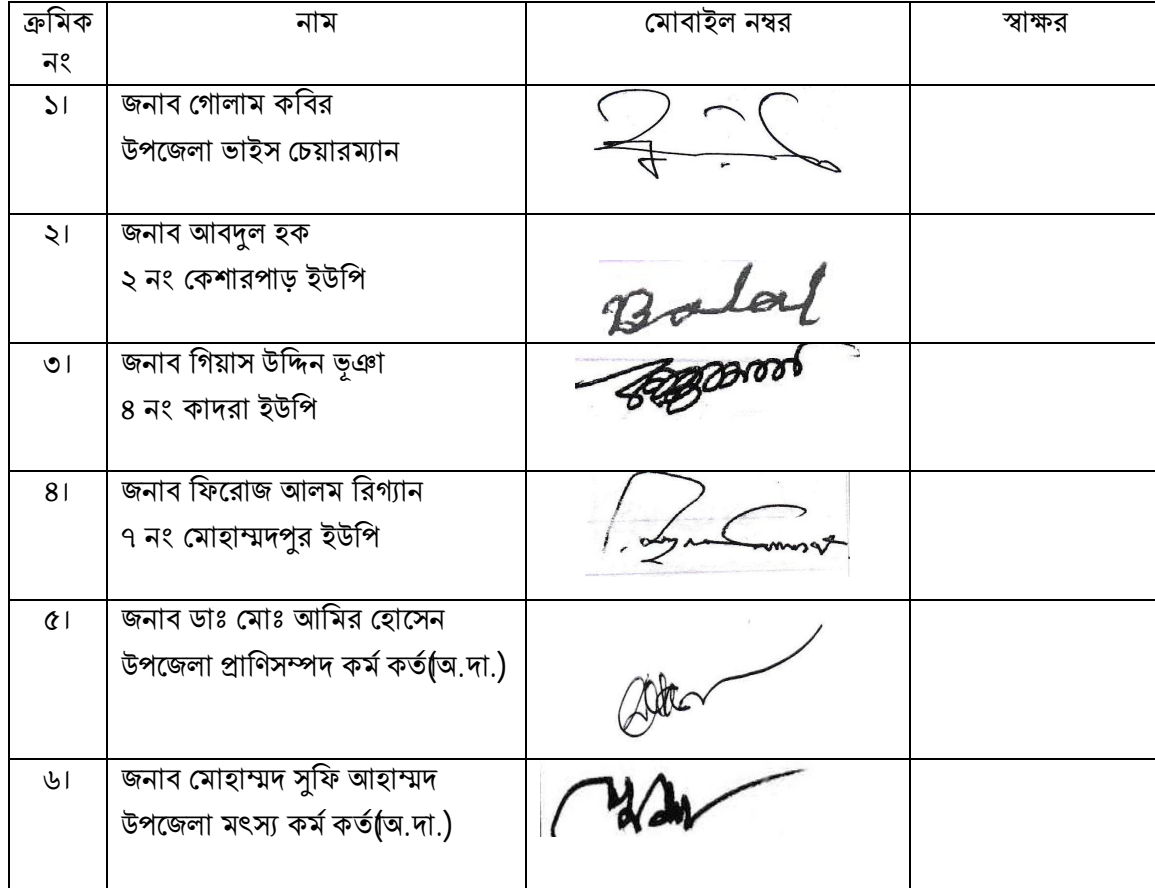 ক্রমিক নাম মোবাইল নম্বর স্বাক্ষর
নং
১। জনাব গোলাম কবির
উপজেলা ভাইস চেয়ারম্যান
২। জনাব আবদুল হক
২ নং কেশারপাড় ইউপি
Balal
৩। জনাব গিয়াস উদ্দিন ভূঞা
৪ নং কাদরা ইউপি
৪। জনাব ফিরোজ আলম রিগ্যান
৭ নং মোহাম্মদপুর ইউপি
৫। জনাব ডাঃ মোঃ আমির হোসেন
উপজেলা প্রাণিসম্পদ কর্ম কর্তা(অ.দা.)
৬। জনাব মোহাম্মদ সুফি আহাম্মদ
উপজেলা মৎস্য কর্ম কর্তা(অ.দা.)